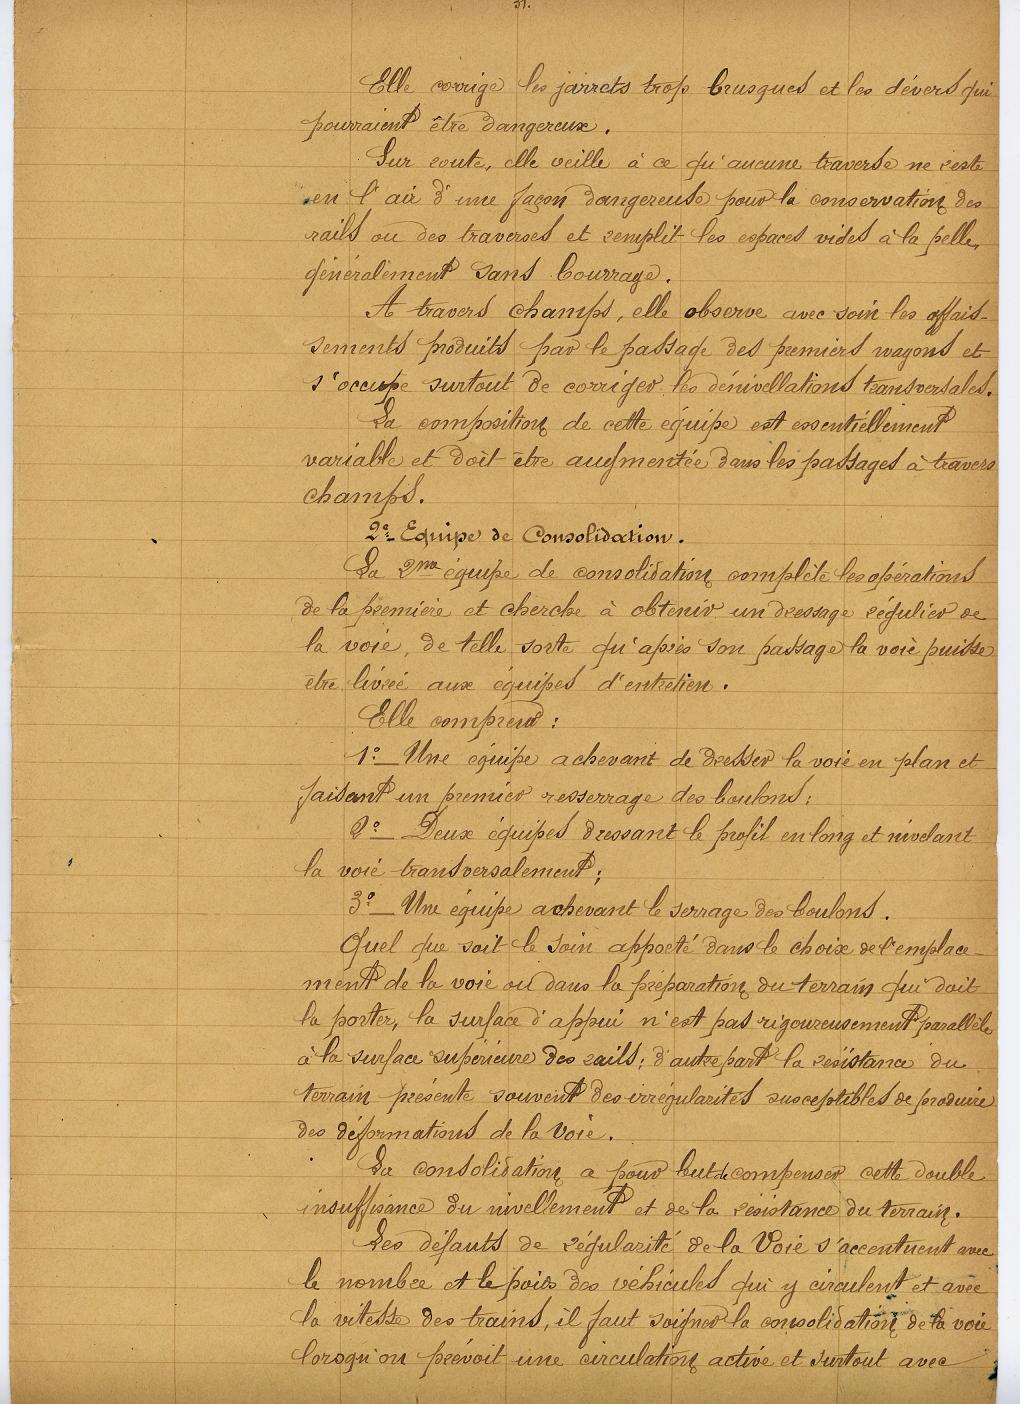 31.
Elle corrige les jarrets trop brusques et les dévers qui
pourraient être dangereux.
Sur route, elle veille à ce qu'aucune traverse ne reste
en l'air d'une façon dangereuse pour la conservation des
rails ou des traverses et remplit les espaces vides à la pelle,
généralement sans bourrage.
A travers champs, elle observe avec soin les affais-
sements produits par le passage des premiers wagons et
s'occupe surtout de corriger les dénivellations transversales.
La composition de cette équipe est essentiellement
variable et doit être augmentée dans les passages à travers
champs.
2º Equipe de Consolidation.
La 2me équipe de consolidation complète les opérations
de la première et cherche à obtenir un dressage régulier de
la voie, de telle sorte qu'après son passage la voie puisse
être livrée aux équipes d'entretien.
Elle comprend :
1º_ Une équipe achevant de dresser la voie en plan et
faisant un premier resserrage des boulons;
2º_ Deux équipes dressant le profil en long et nivelant
la voie transversalement;
3º_ Une équipe achevant le serrage des boulons.
Quel que soit le soin apporté dans le choix de l'emplace-
ment de la voie ou dans la préparation du terrain qui doit
la porter, la surface d'appui n'est pas rigoureusement parallèle
à la surface supérieure des rails; d'autre part la résistance du
terrain présente souvent des irrégularités susceptibles de produire
des déformations de la Voie.
La consolidation a pour but de compenser cette double
insuffisance du nivellement et de la résistance du terrain.
Les défauts de régularité de la Voie s'accentuent avec
le nombre et le poids des véhicules qui y circulent et avec
la vitesse des trains, il faut soigner la consolidation de la voie
lorsqu'on prévoit une circulation active et surtout avec